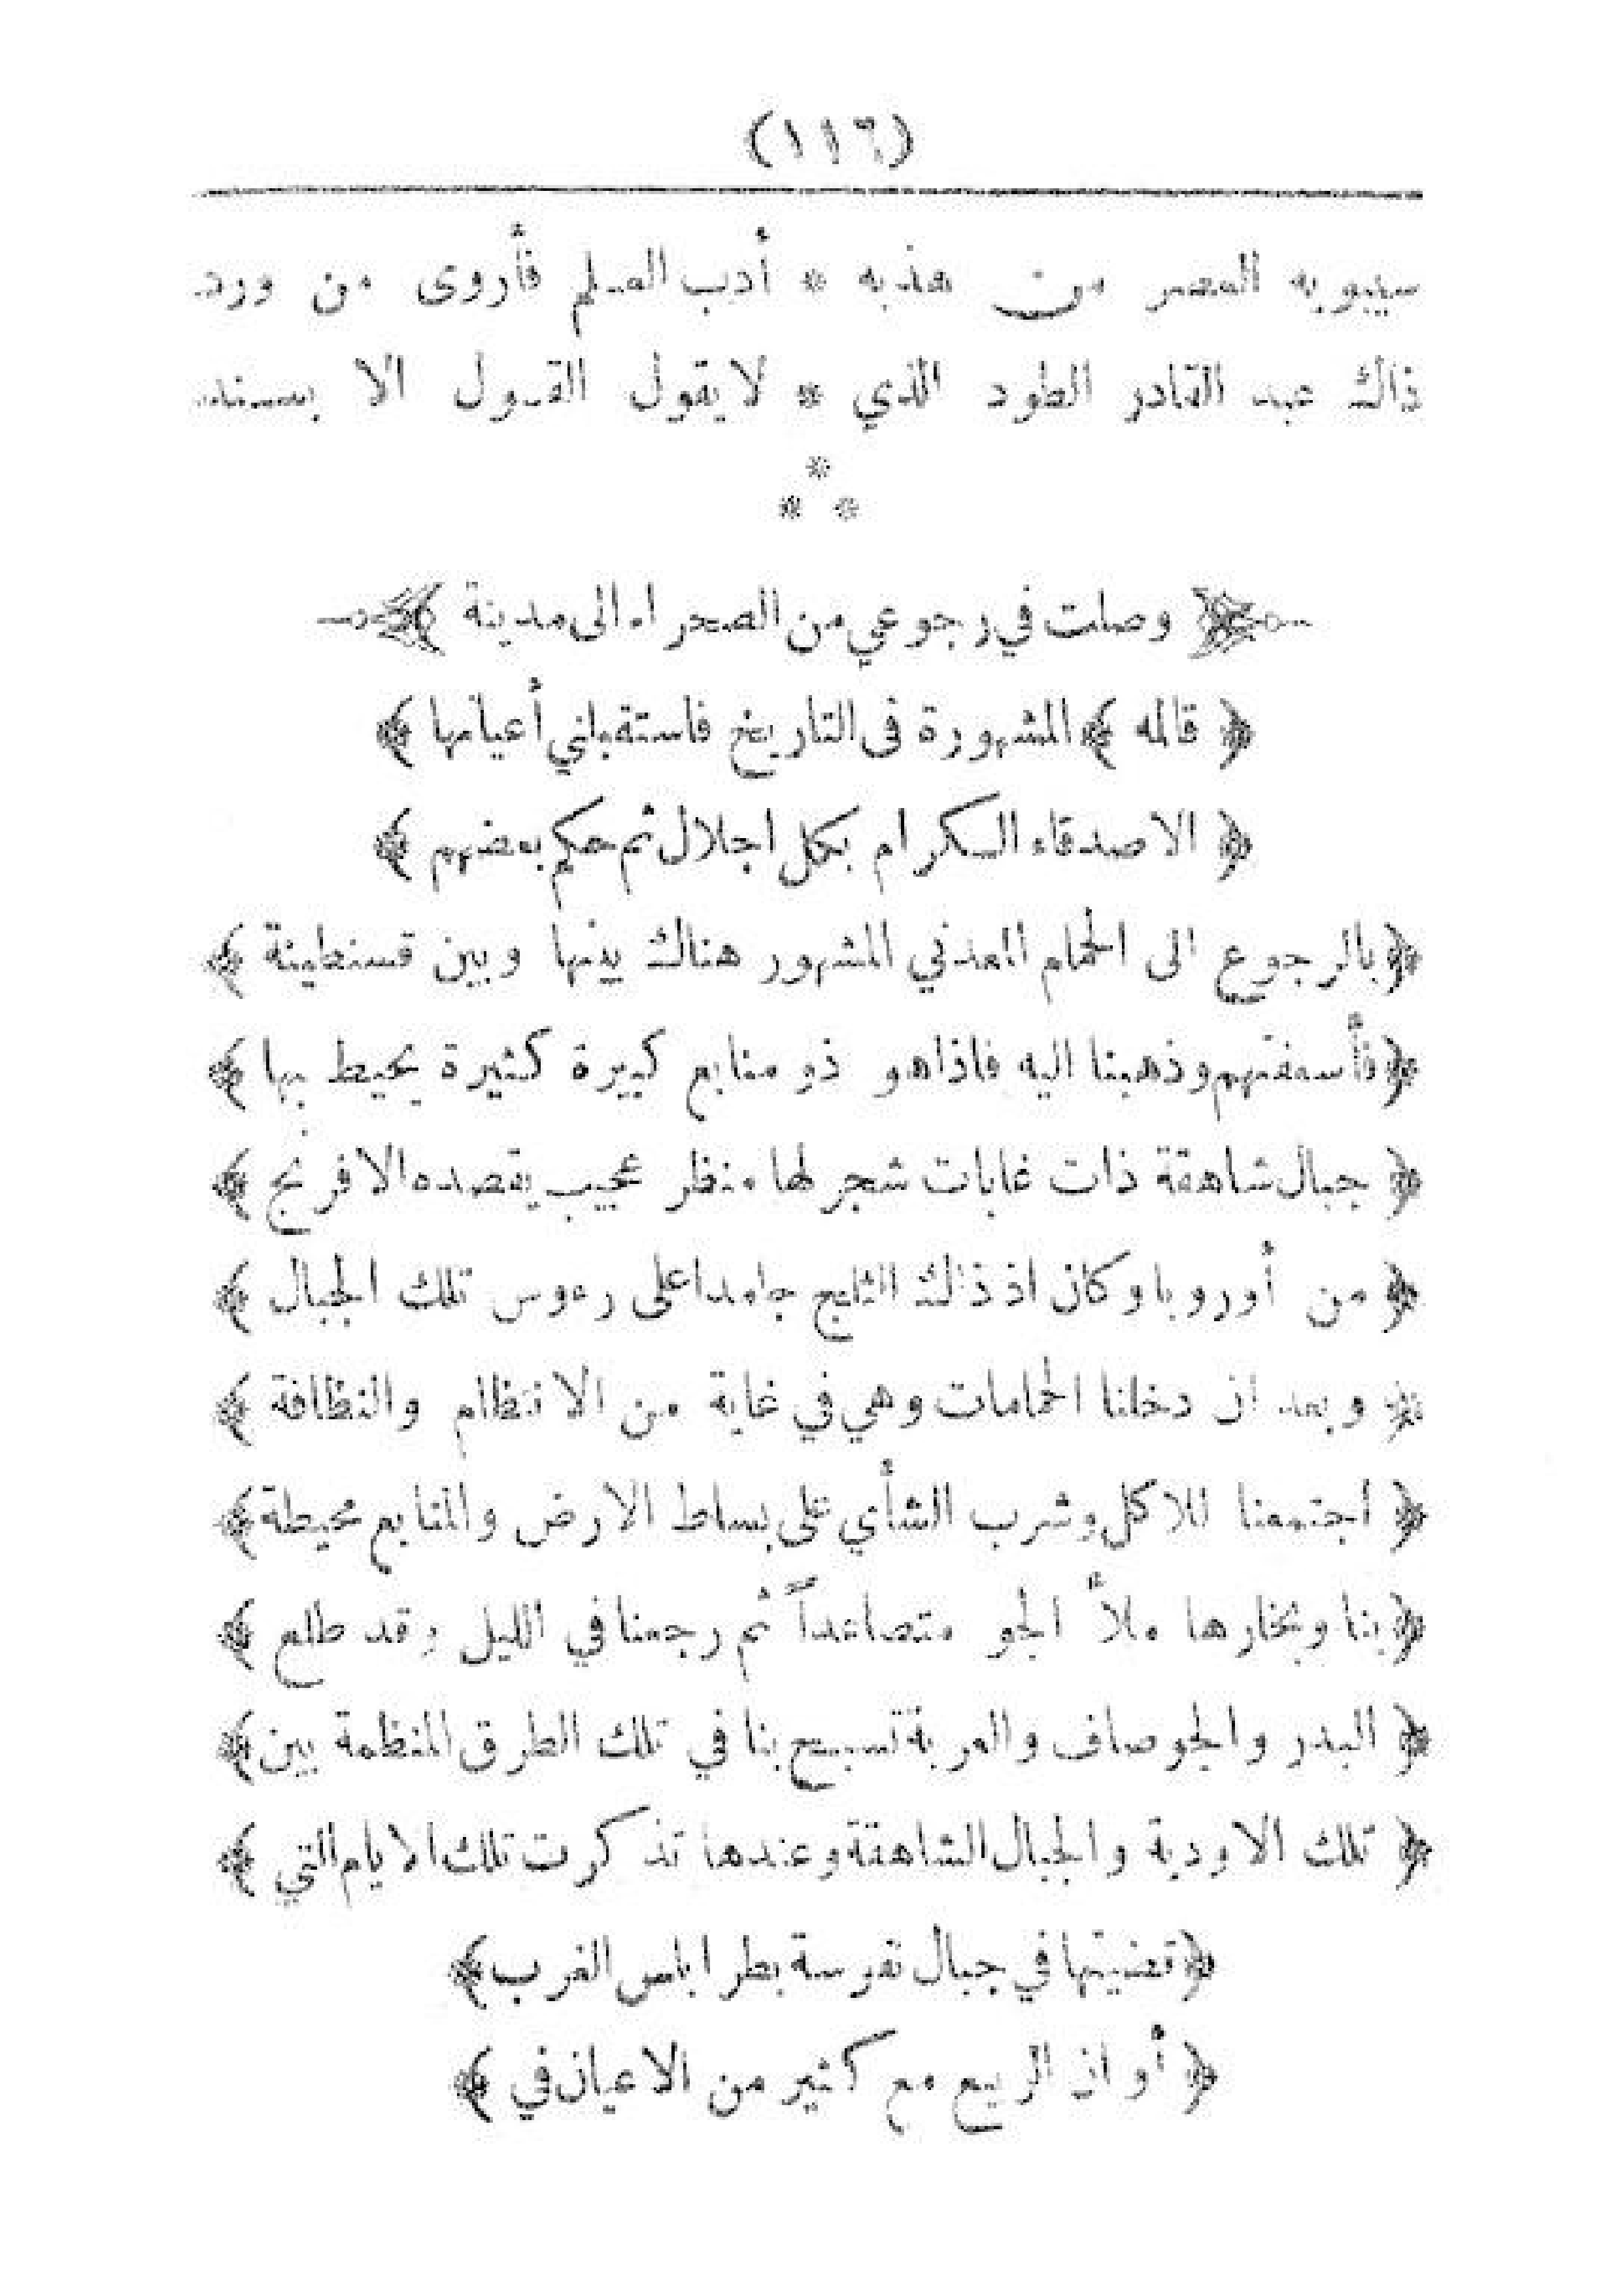 (١١٦)
سيبويه العصر من هذبه * أدب العلم فأروى من ورد
ذاك عبد القادر الطود الذي * لا يقول القول الا بسند
*
* *
﴿ وصلت في رجوعي من الصحراء الى مدينة ﴾
﴿ قالمه ﴾ المشهورة في التاريخ فاستقبلني أعيانها ﴾
﴿ الاصدقاء الكرام بكل اجلال ثم حكم بعضهم ﴾
﴿ وبالرجوع الى الحمام المعدني المشهور هناك بينها وبين قسنطينة ﴾
﴿ فأسعفتهم وذهبنا اليه فاذا هو ذو منابع كبيرة كثيرة يحيط بها ﴾
﴿ جبال شاهقة ذات غابات شجر لها منظر عجيب يقصده الافرنج ﴾
﴿ من أوروبا وكان اذ ذاك الثلج جامدا على رءوس تلك الجبال ﴾
﴿ وبعد ان دخلنا الحمامات وهي في غاية من الانتظام والنظافة ﴾
﴿ اجتمعنا للاكل وشرب الشأي على بساط الارض والمنابع محيطة ﴾
﴿ بنا وبخارها ملأ الجو متصاعداً ثم رجعنا في الليل وقد طلع ﴾
﴿ البدر والجو صاف والعربة تسبح بنا في تلك الطرق المنظمة بين ﴾
﴿ تلك الاودية والجبال الشاهقة وعندها تذكرت تلك الايام التي ﴾
﴿ قضيتها في جبال نفوسة بطرابلس الغرب ﴾
﴿ أوان الربيع مع كثير من الاعيان في ﴾